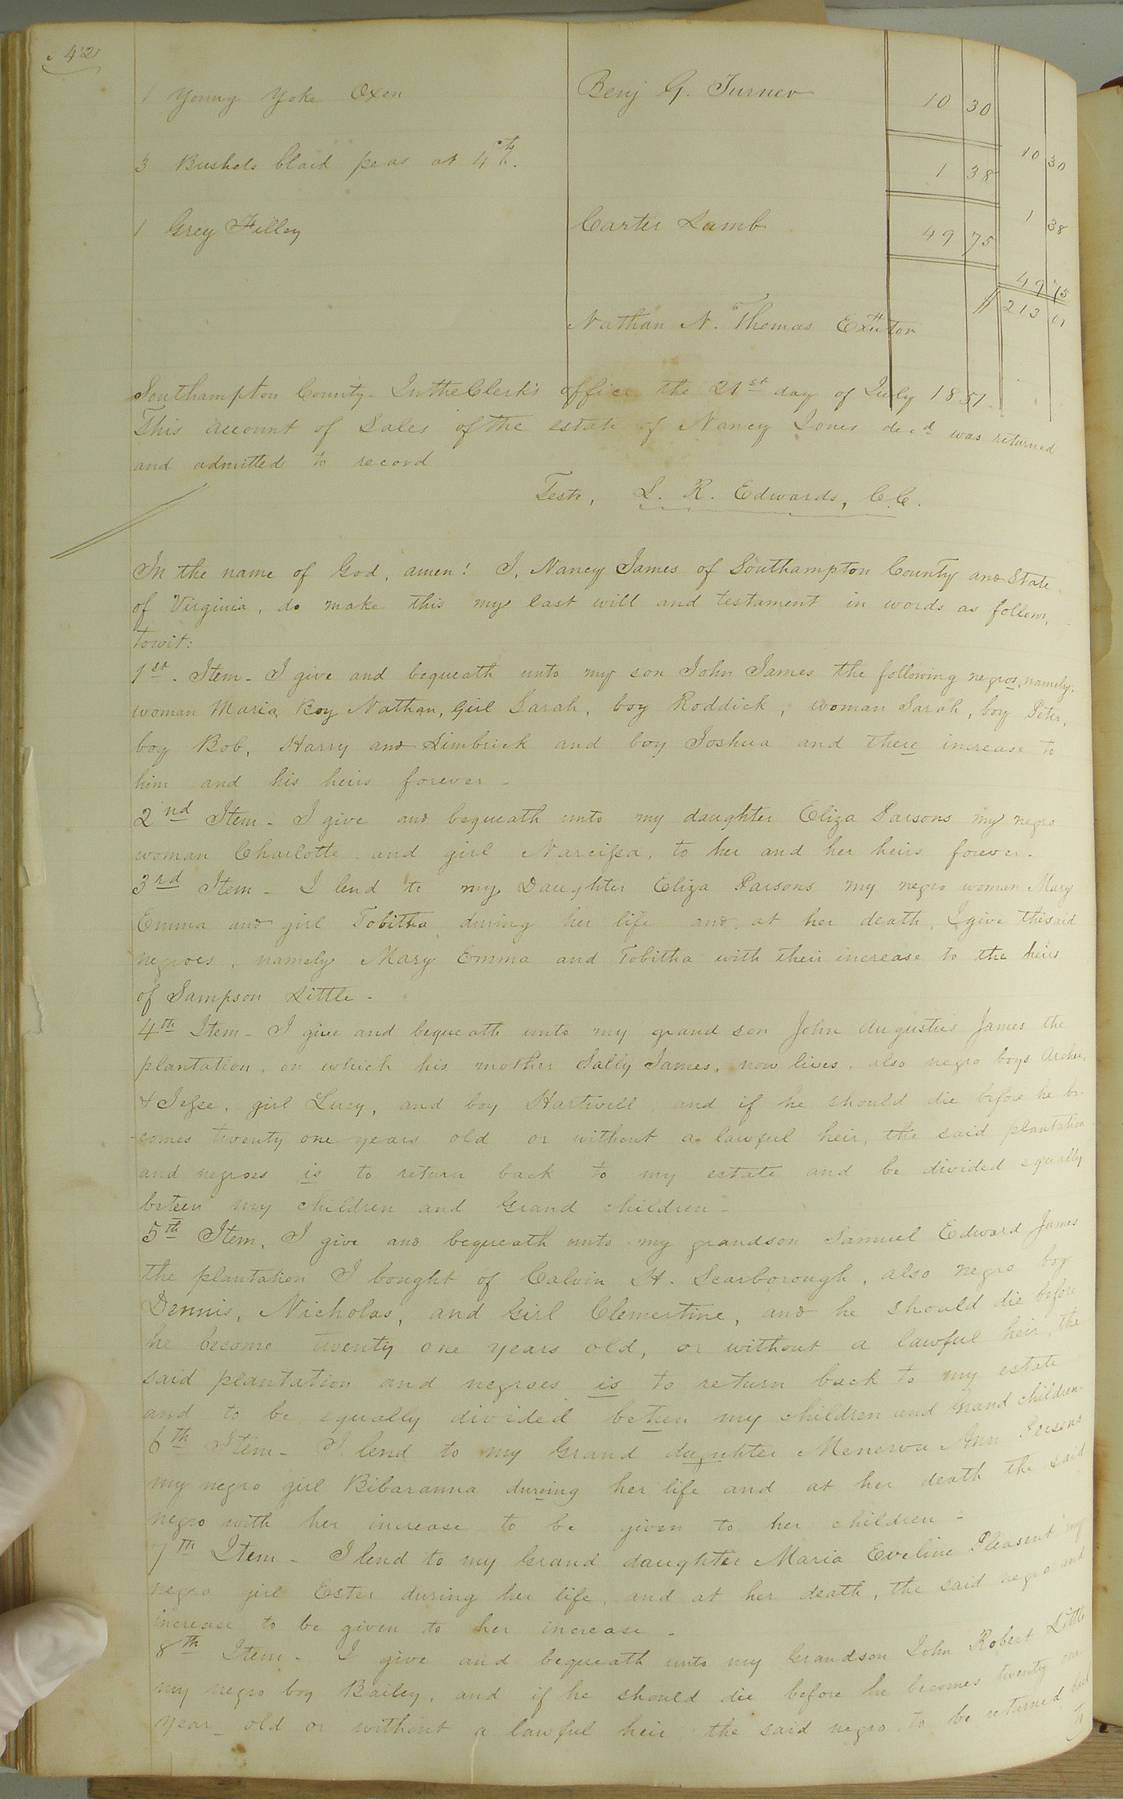 42
1 Young Yoke Oxen Benj G. Turner 10 30
10 30
3 Bushels blaid peas at 4/6. 1 38
1 38
1 Grey Filley Carter Lamb 49 75
49 75
Nathan N. Thomas Exutor 213 01
Southampton County. In the Clerk's office the 21st day of July 1851.
This account of Sales of the estate of Nancy Jones decd was returned
and admitted to record
Teste, L. R. Edwards, C.C.
In the name of God, amen! I, Nancy James of Southampton County and State
of Virginia, do make this my last will and testament in words as follows,
towit:
1st. Item - I give and bequeath unto my son John James the following negros, namely.
woman Maria, Boy Nathan, Girl Sarah, boy Roddick, woman Sarah, boy Peter,
boy Bob, Harry and Limbrick and boy Joshua and there increase to
him and his heirs forever -
2nd Item - I give and bequeath unto my daughter Eliza Parsons my negro
woman Charlotte and girl Narcissa, to her and her heirs forever.
3rd Item - I lend to my Daughter Eliza Parsons my negro woman Mary
Emma and girl Tobitha during her life and at her death, I give the said
negroes, namely Mary Emma and Tobitha with their increase to the heirs
of Sampson Little -
4th Item - I give and bequeath unto my grand son John Augustus James the
plantation, on which his mother Sally James, now lives, also negro boys Archer,
& Jesse, girl Lucy, and boy Hartwell, and if he should die before he be-
-comes twenty one years old or without a lawful heir, the said plantation
and negroes is to return back to my estate and be divided equally
beteen my children and Grand children -
5th Item, I give and bequeath unto my grandson Samuel Edward James
the plantation I bought of Calvin H. Scarborough, also negro boy
Dennis, Nicholas, and Girl Clementine, and he should die before
he become twenty one years old, or without a lawful heir, the
said plantation and negroes is to return back to my estate
and to be equally divided beteen my children and Grand children
6th Item - I lend to my Grand daughter Menerva Ann Persons
my negro girl Bibaranna durving her life and at her death the said
negro with her increase to be given to her children -
7th Item - I lend to my Grand daughter Maria Eveline Pleasent my
negro girl Ester during her life, and at her death, the said negro and
increase to be given to her increase -
8th Item - I give and bequeath unto my Grandson John Robert Little
my negro boy Bailey, and if he should die before he becomes twenty one
year old or without a lawful heir the said negro to be returned back
to